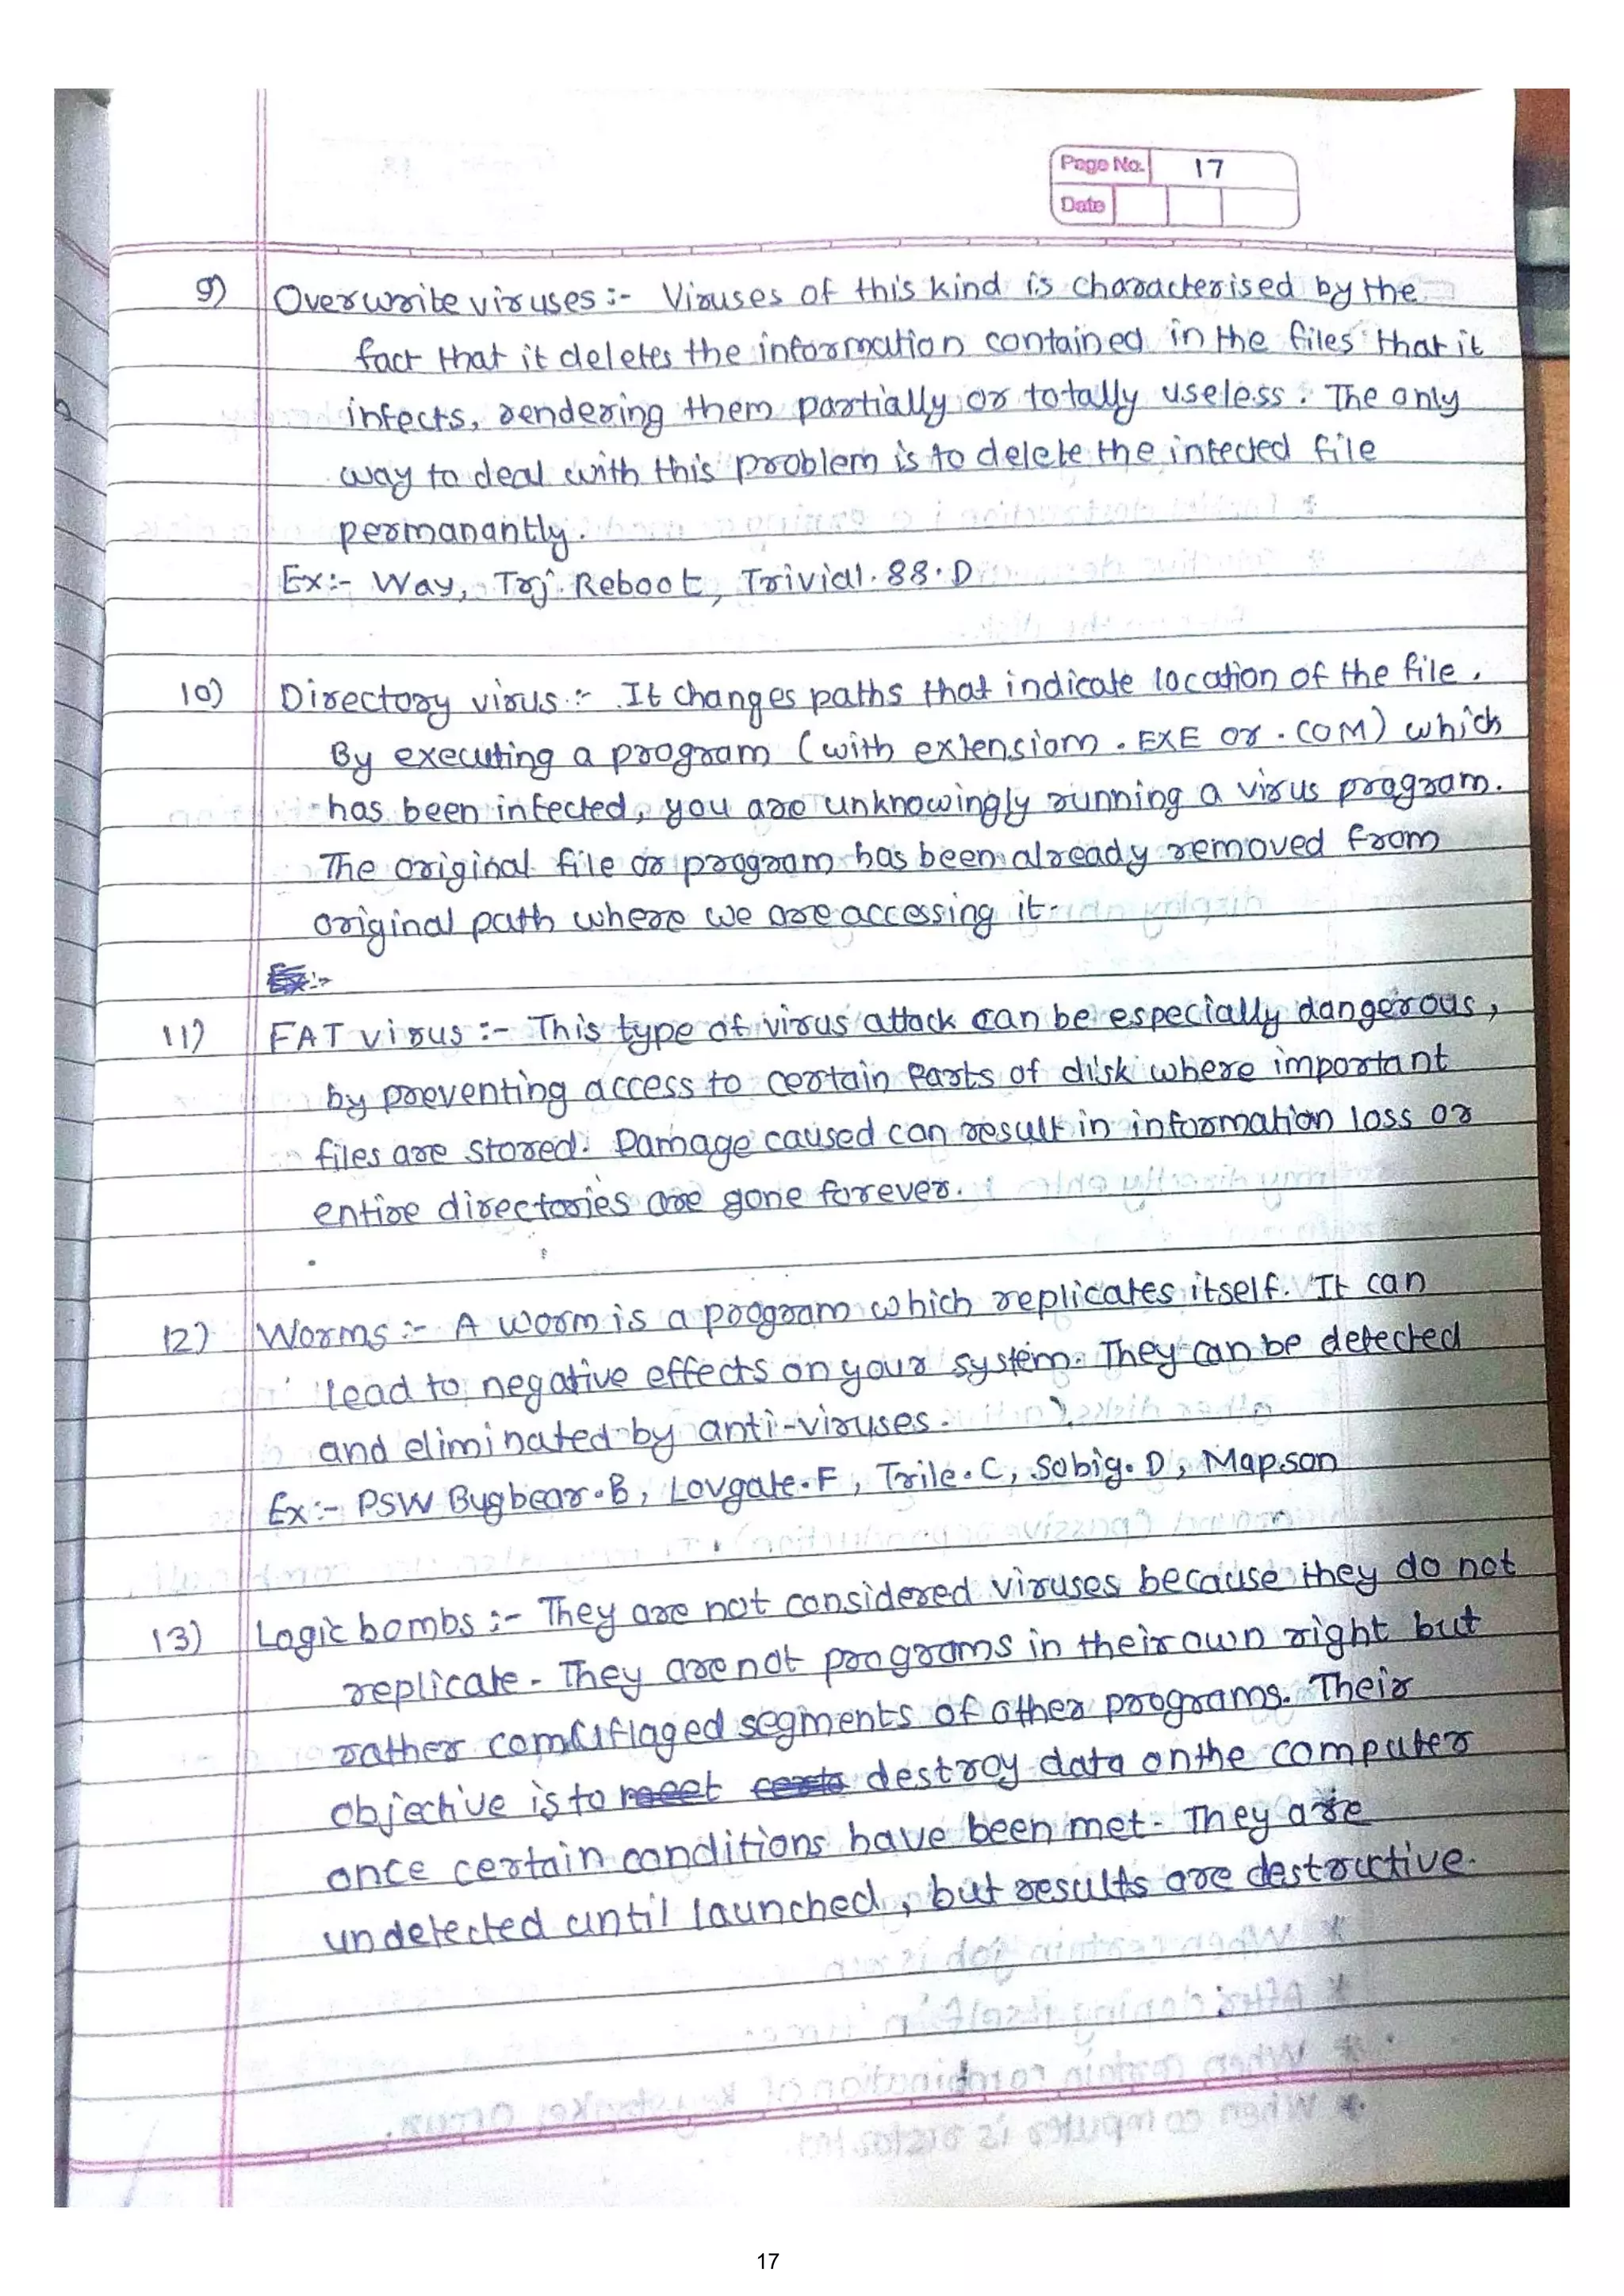 Page No. 17
Date
9) Overwrite viruses :- Viruses of this kind is characterised by the
fact that it deletes the information contained in the files that it
infects, rendering them partially or totally useless. The only
way to deal with this problem is to delete the infected file
permanantly.
Ex:- Way, Trj. Reboot, Trivial. 88. D
10) Directory virus :- It changes paths that indicate location of the file.
By executing a program (with extensiom .EXE or .COM) which
has been infected, you are unknowingly running a virus program.
The original file or program has been already removed from
original path where we are accessing it.
Ex:-
11) FAT virus :- This type of virus attack can be especially dangerous,
by preventing access to certain parts of disk where important
files are stored. Damage caused can result in information loss or
entire directories are gone forever.
12) Worms :- A worm is a program which replicates itself. It can
lead to negative effects on your system. They can be detected
and eliminated by anti-viruses.
Ex:- PSW Bugbear.B, Lovgate.F, Trile.C, Sobig.D, Mapson
13) Logic bombs :- They are not considered viruses because they do not
replicate. They are not programs in their own right but
rather camuflaged segments of other programs. Their
objective is to destroy data on the computer
once certain conditions have been met. They are
undetected until launched, but results are destructive.
17